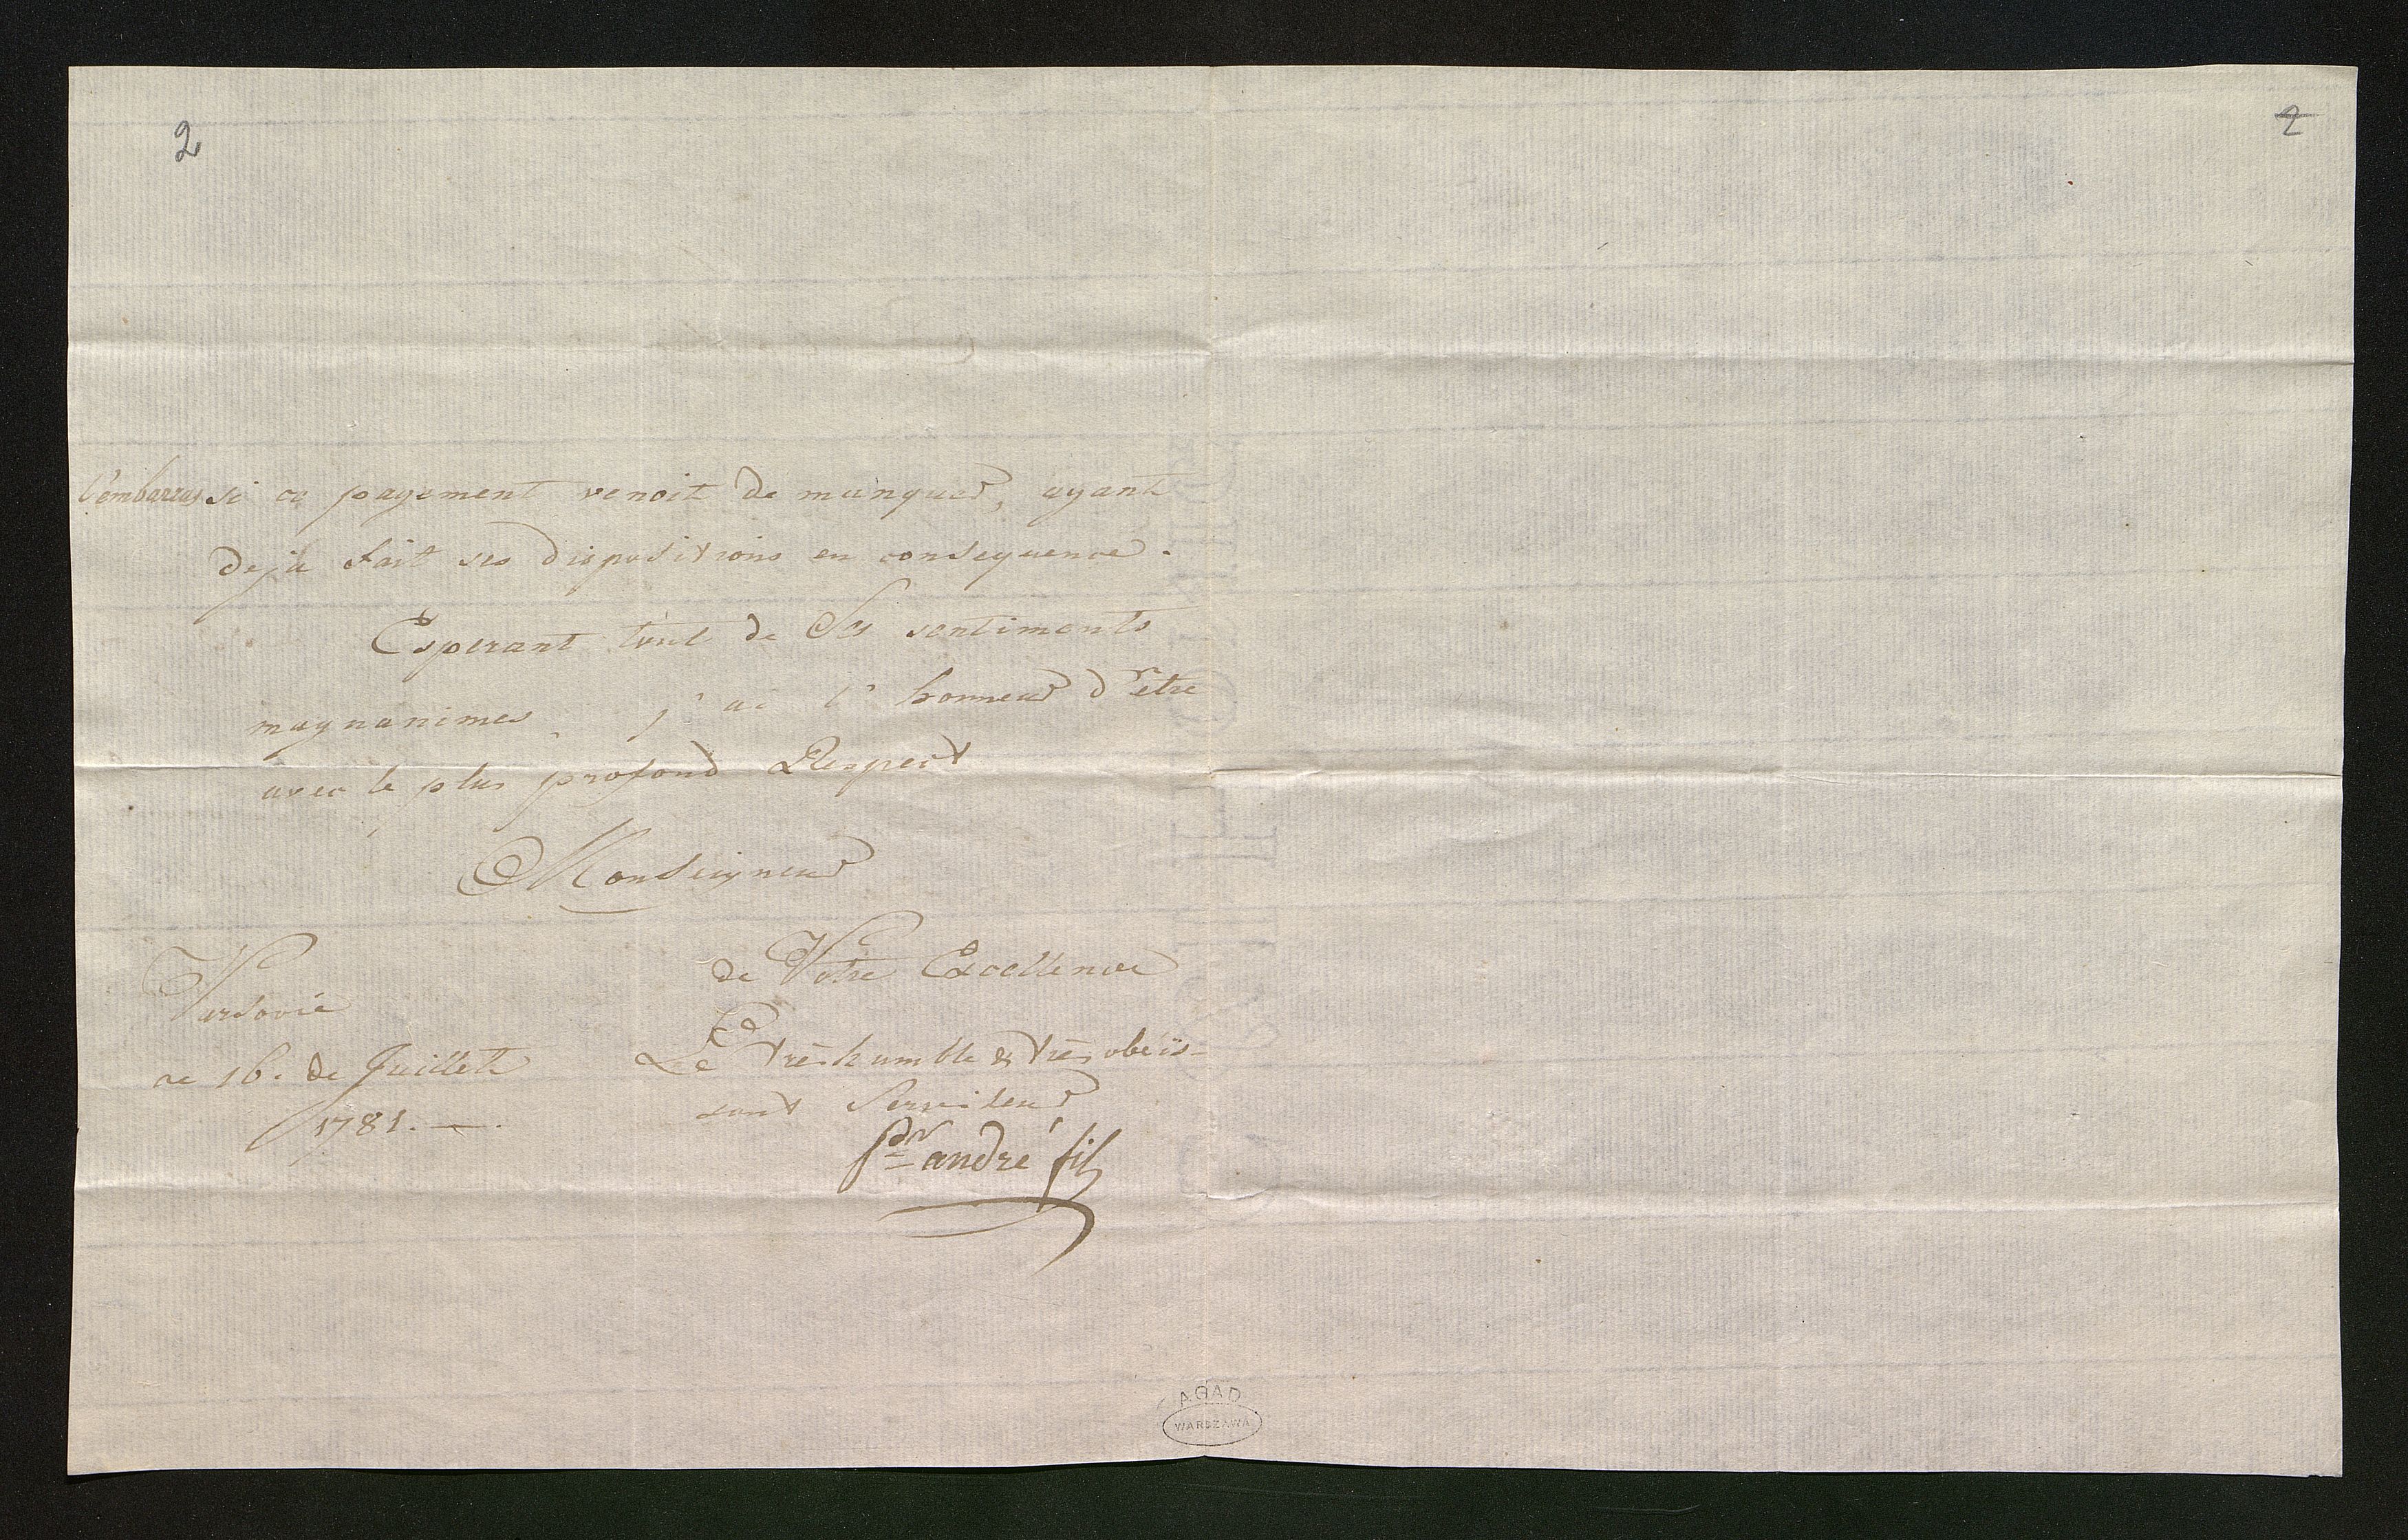 2
2
l'embarras si ce payement venoit de manquer, ayant
deja fait ses dispositions en consequence.
Esperant tout de Ses sentiments
magnanimes, j'ai l'honneur d'être
avec le plus profond Respect
Monseigneur
de Votre Excellence
Varsovie
ce 16. de Juillet
1781. —.
Le très humble & très obeïs-
sant Serviteur
andré fils
AGAD
WARSZAWA